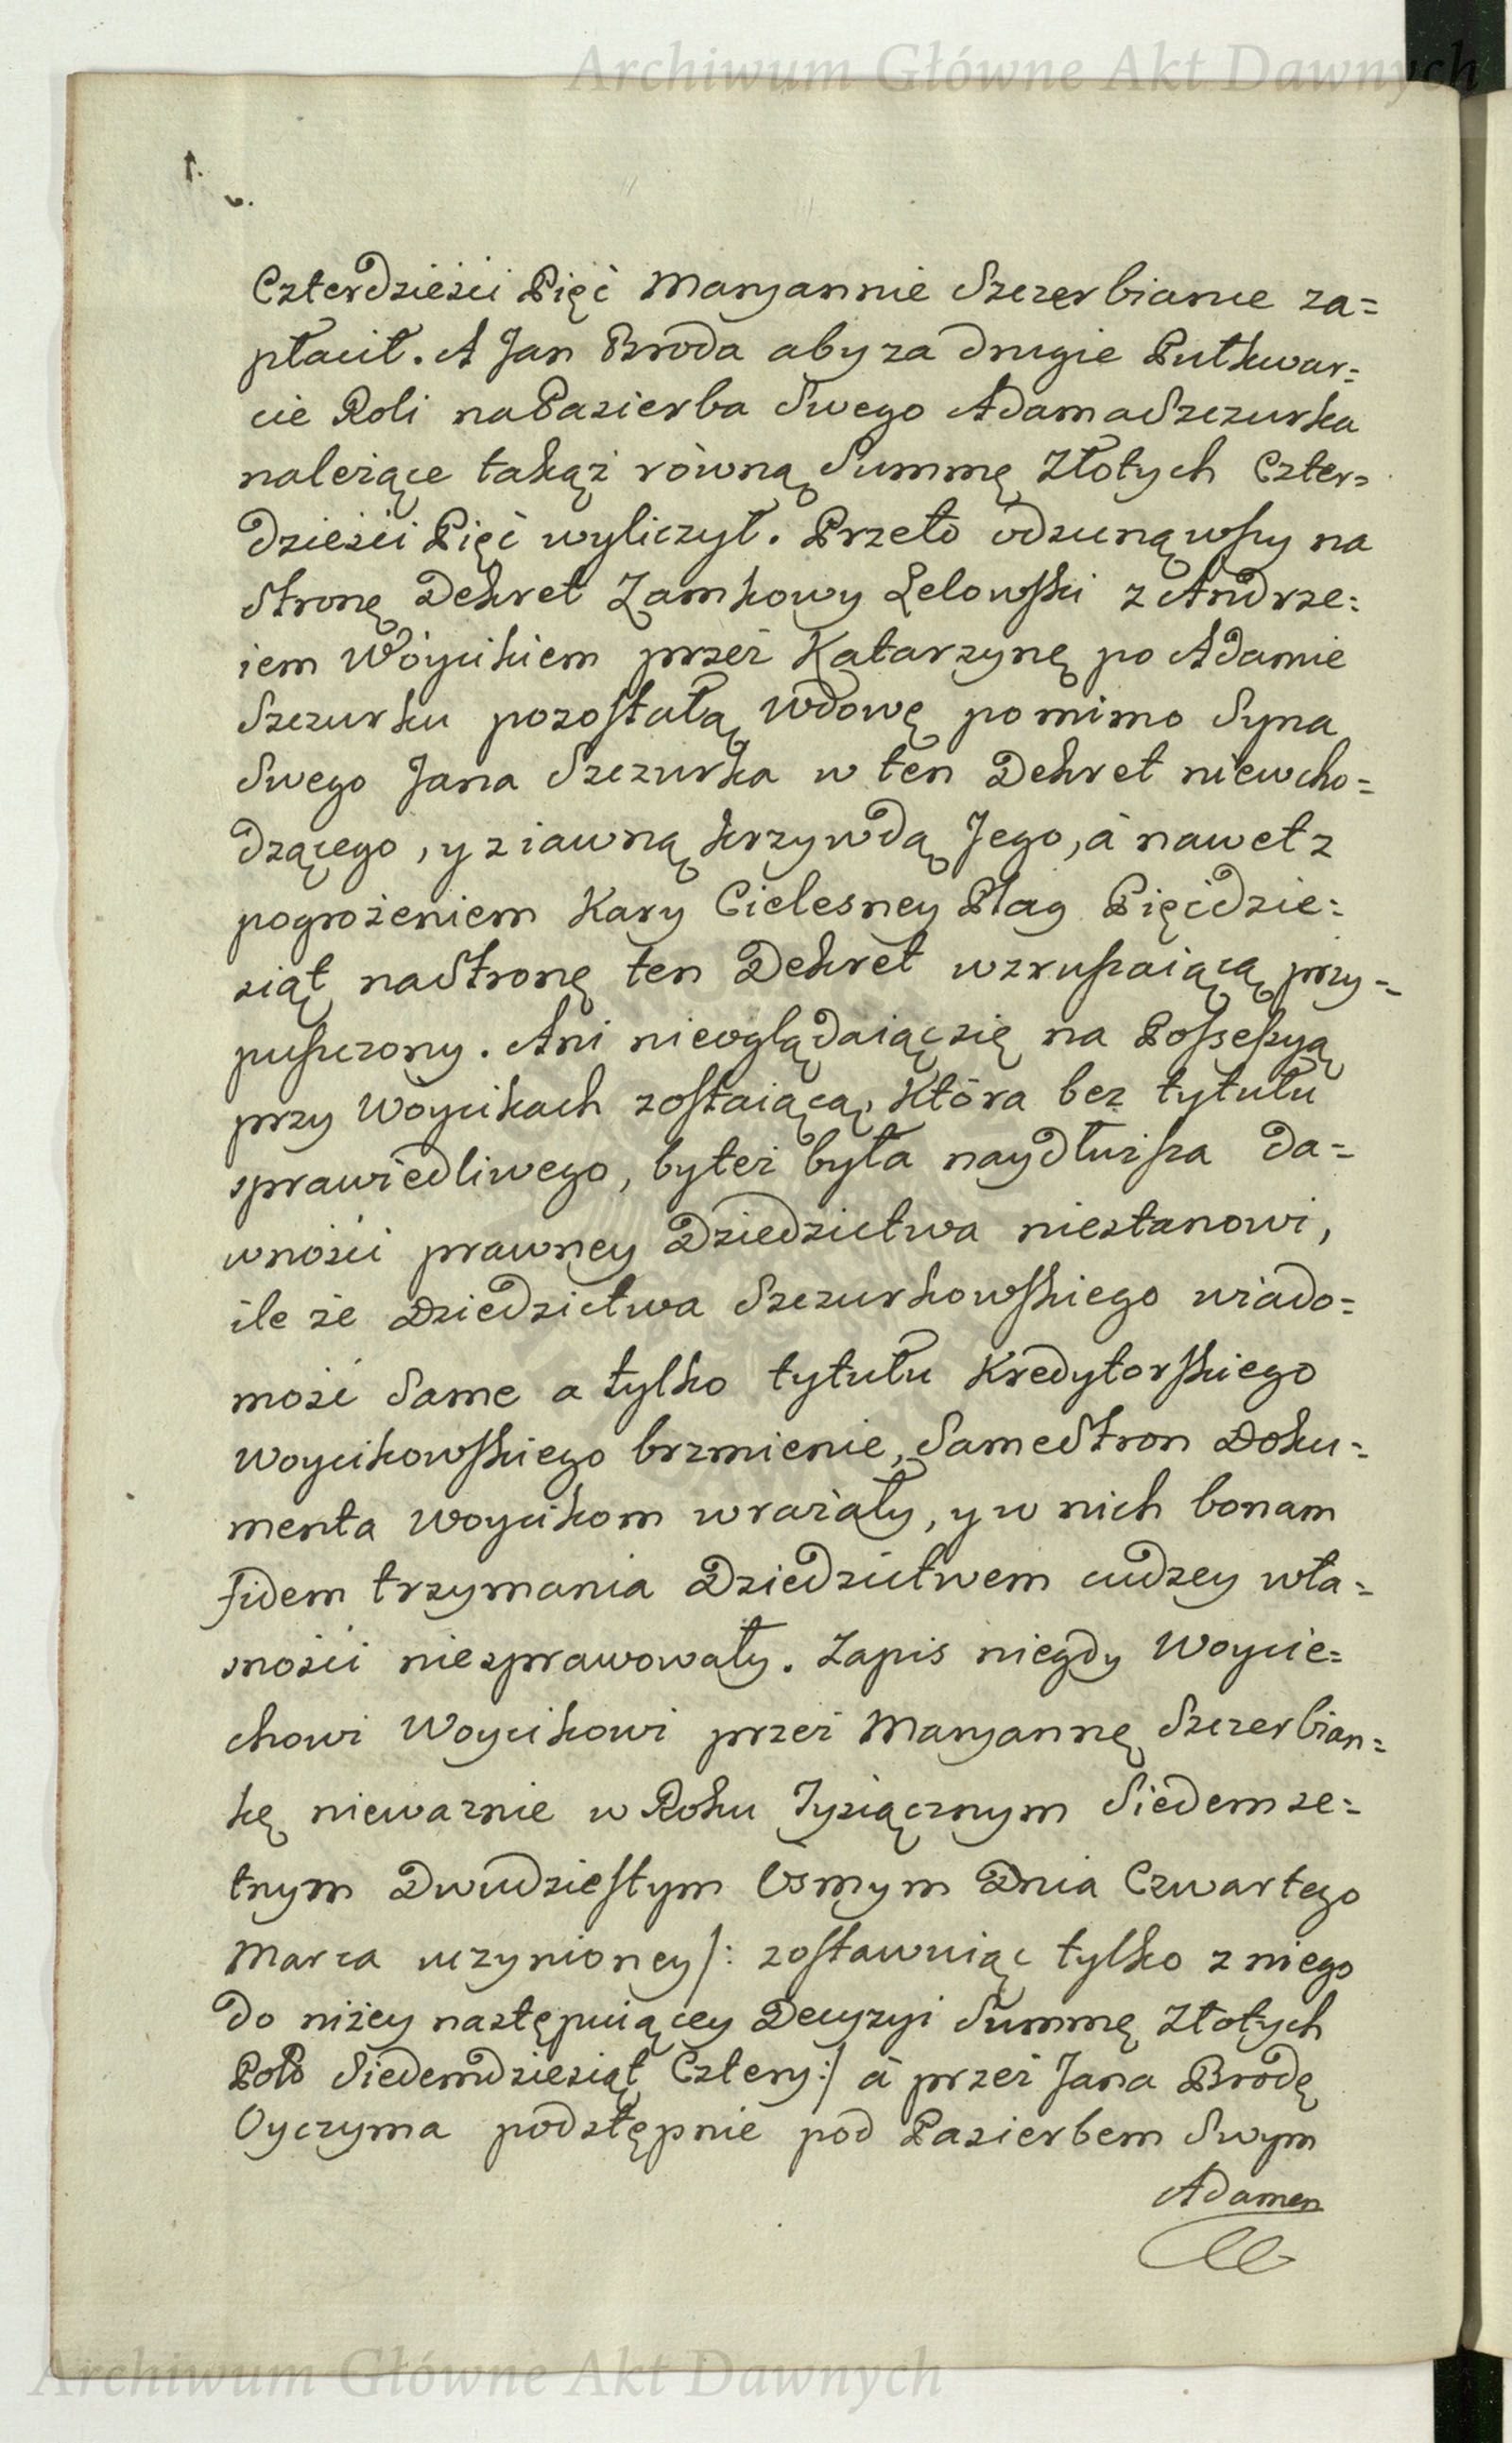 Archiwum Główne Akt Dawnych
Czterdzieści Pięć Maryannie Szczerbiance za=
płacił. A Jan Broda aby za drugie Pułkwar=
cie Roli na Pasierba Swego Adama Szczurka
należące takąż równą Summę Złotych Czter=
dzieści Pięć wyliczył. Przeto odsunąwszy na
Stronę Dekret Zamkowy Lelowski z Andrze=
iem Wóycikiem przez Katarzynę po Adamie
Szczurku pozostałą Wdowę pomimo Syna
Swego Jana Szczurka w ten Dekret niewcho=
dzącego, y z iawną krzywdą Jego, à nawet z
pogrożeniem Kary Cielesney Plag Pięćdzie=
siąt na Stronę ten Dekret wzruszaiącą przy=
puszczony. Ani nieoglądaiąc się na Possessyą
przy Woycikach zostaiącą, Która bez tytułu
sprawiedliwego, byteż była naydłuższa da=
wności prawney Dziedzictwa niestanowi,
ile że Dziedzictwa Szczurkowskiego wiado=
mość Same a tylko tytułu Kredytorskiego
Woycikowskiego brzmienie, Same Stron Doku=
menta Woycikom wrażały, y w nich bonam
fidem trzymania Dziedzictwem cudzey wła=
sności niesprawowały. Zapis niegdy Woycie=
chowi Woycikowi przez Maryannę Szczerbian=
kę nieważnie w Roku Tysiącznym Siedemse=
tnym Dwudziestym Osmym Dnia Czwartego
Marca uczynioney /: zostawuiąc tylko z niego
do niżey następuiącey Decyzyi Summę Złotych
Pols Siedemdziesiąt Cztery :/ à przez Jana Brodę
Oyczyma podstępnie pod Pasierbem Swym
Adamem
Archiwum Główne Akt Dawnych